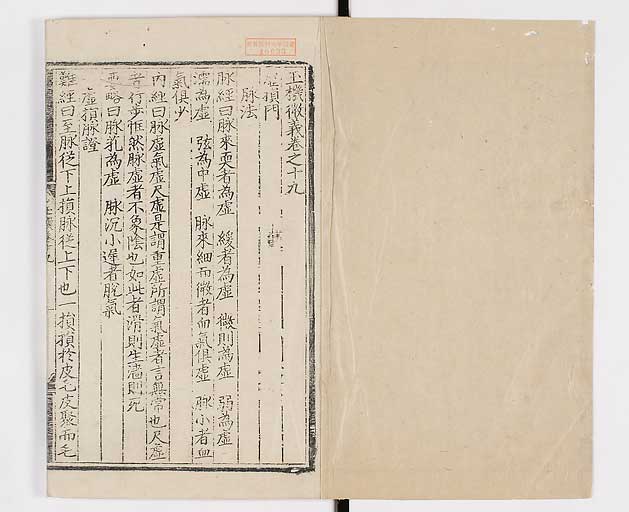 玉機微義卷之十九
虛損門
脉法
脉經曰脉來耎者為虛 緩者為虛 微則為虛 弱為虛
濡為虛 弦為中虛 脉來細而微者血氣俱虛 脉小者血
氣俱少
內經曰脉虛氣虛尺虛是謂重虛所謂氣虛者言無常也尺虛
者行步恇然脉虛者不象陰也如此者滑則生濇則死
要略曰脉芤為虛 脉沉小遲者脫氣
虛損脉證
難經曰至脉從下上損脉從上下也一損損於皮毛皮聚而毛